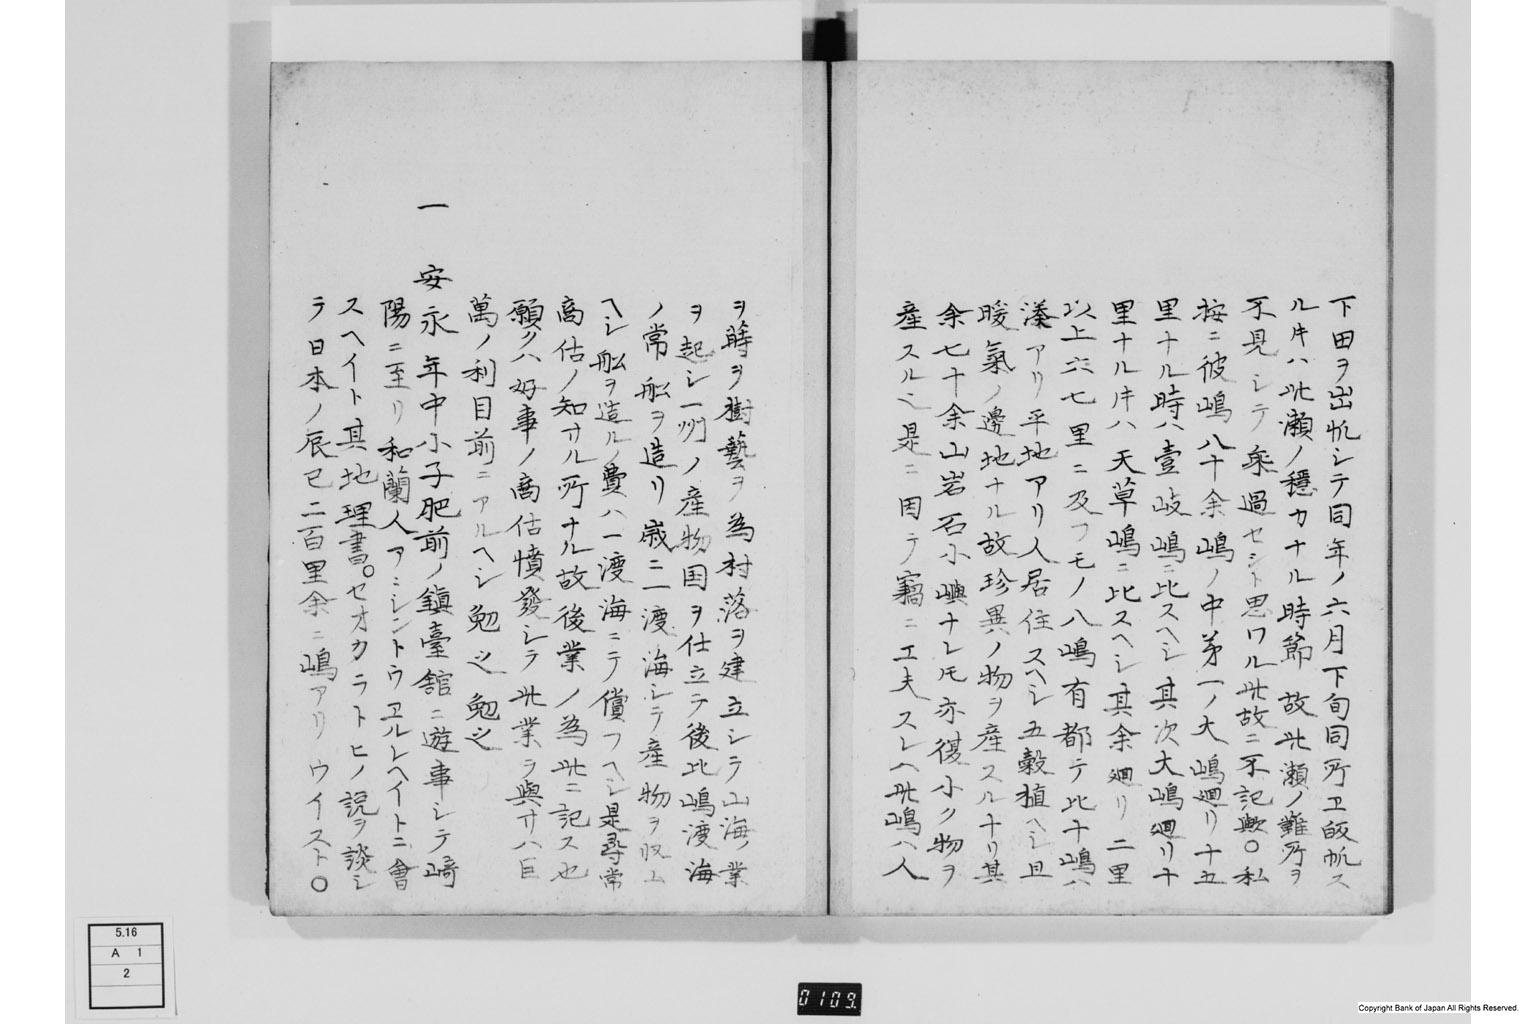 下田ヲ出帆シテ同年ノ六月下旬同所ヱ皈帆ス
ルキハ此瀬ノ穩カナル時節故此瀬ノ難所ヲ
不見シテ乗過セシト思ワル此故ニ不記歟〇私
按ニ彼嶋八十余嶋ノ中第一ノ大嶋廻リ十五
里ナル時ハ壹岐嶋ニ比スヘシ其次大嶋廻リ十
里ナルキハ天草嶋ニ比スヘシ其余廻リ二里
以上六七里ニ及フモノ八嶋有都テ比十嶋ハ
湊アリ平地アリ人居住スヘシ五穀植ヘシ且
暖氣ノ邊地ナル故珍異ノ物ヲ産スルナリ其
余七十余山岩石小嶼ナレ𪜈亦復小ク物ヲ
産スル也是ニ因テ竊ニ工夫スレハ此嶋ハ人
ヲ蒔ヲ樹藝ヲ為村落ヲ建立シテ山海ノ業
ヲ起シ一州ノ産物国ヲ仕立テ後比嶋渡海
ノ常船ヲ造リ歳ニ一渡海シテ産物ヲ収ム
ヘシ船ヲ造ル費ハ一渡海ニテ償フヘシ是尋常
啇估ノ知ヿル所ナル故後業ノ為此ニ記ス也
願クハ好事ノ啇估憤發シテ此業ヲ興ヿハ巨
萬ノ利目前ニアルヘシ勉之勉之
一 安永年中小子肥前ノ鎮臺舘ニ遊事シテ崎
陽ニ至リ和蘭人アヽシントウヱルレヘイトニ會
スヘイト其地理書。セオカラヒノ説ヲ談シ
テ日本ノ辰巳二百里余ニ嶋アリウイスト〇
5.16
A 1
2
0109
Copyright Bank of Japan All Rights Reserved.